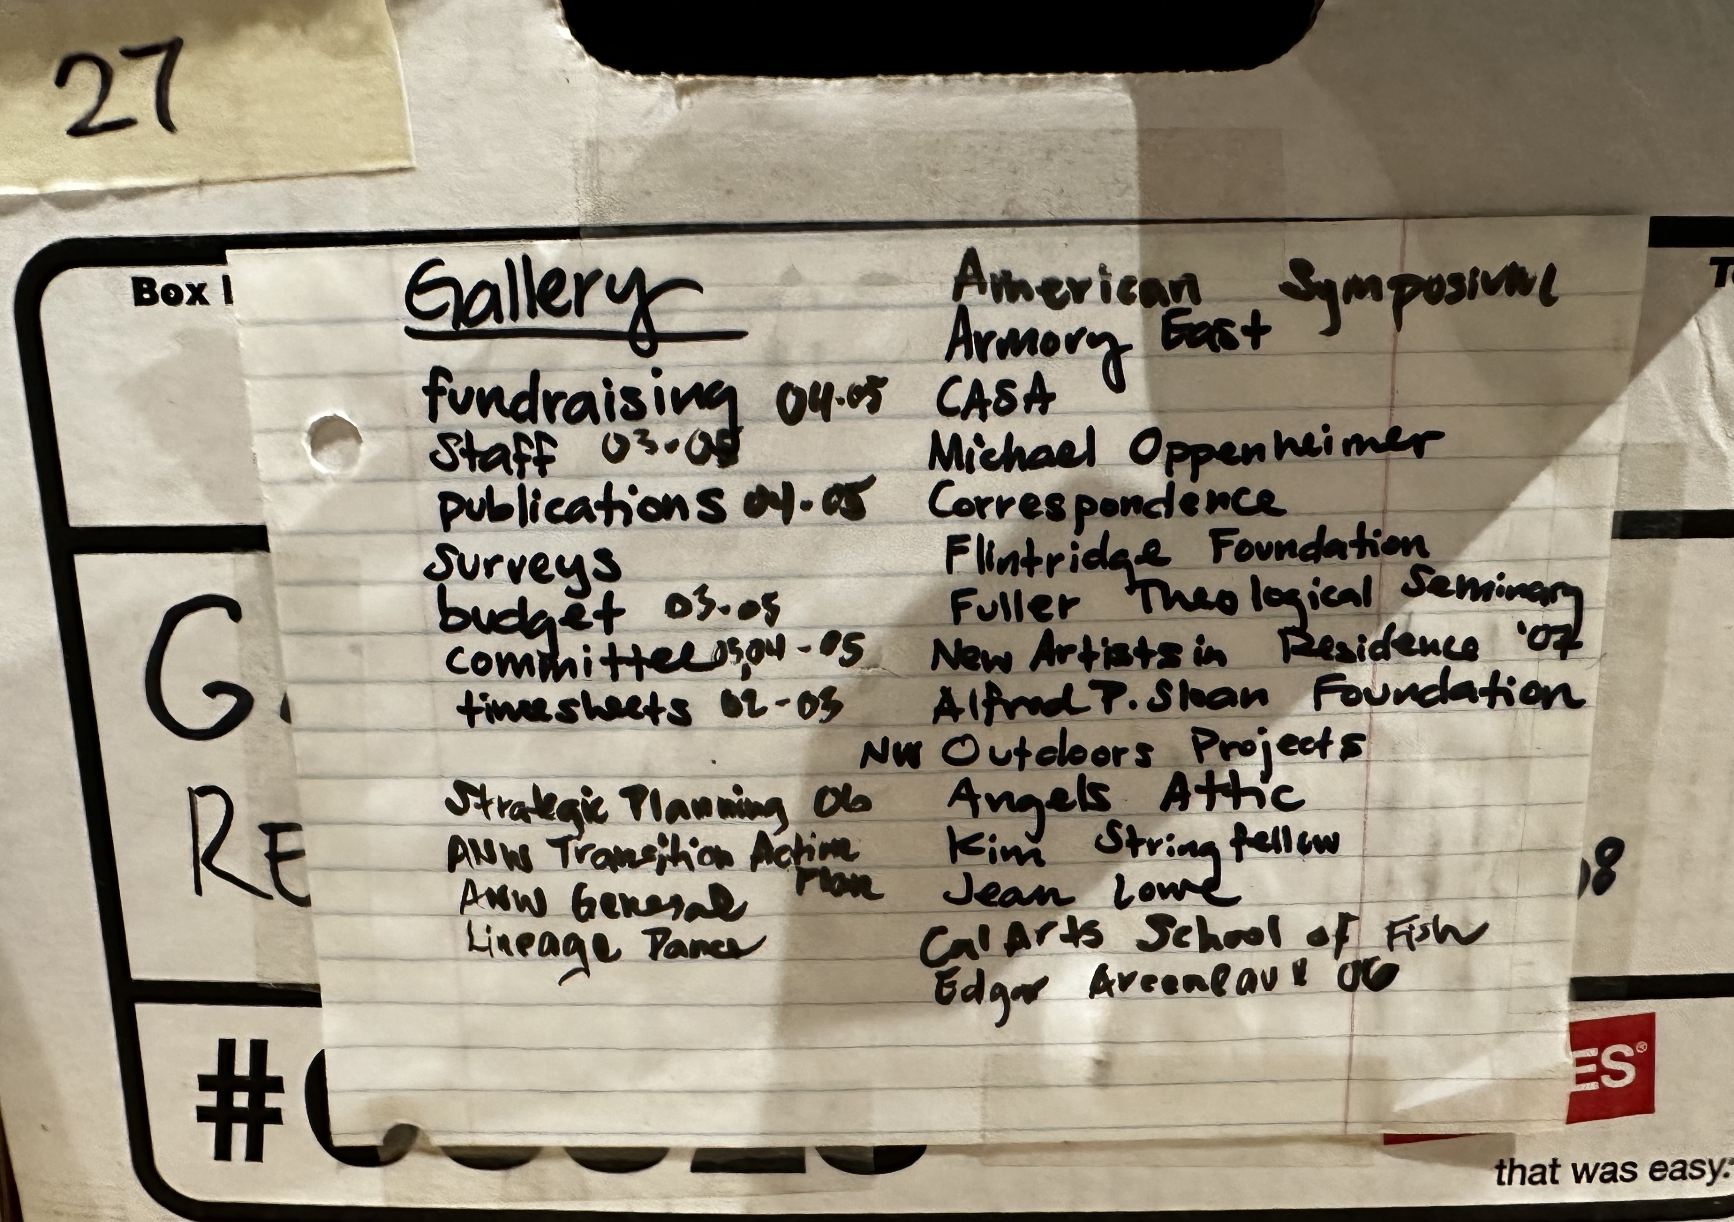 27
Box
Gallery
fundraising 04-05
Staff 03-05
publications 04-05
surveys
budget 03-05
committee 03,04-05
timesheets 02-03
Strategic Planning 06
ANW Transition Action
Plan
ANW General
Lineage Dance
American Symposium
Armory East
CASA
Michael Oppenheimer
Correspondence
Flintridge Foundation
Fuller Theological Seminary
New Artists in Residence '07
Alfred P. Sloan Foundation
NW Outdoors Projects
Angels Attic
Kim Stringfellow
Jean Lowe
Cal Arts School of Fish
Edgar Arceneaux 06
G
RE
8
#
ES®
that was easy.